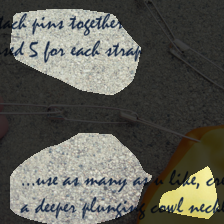 tach pins together
used 5 for each strap
...use as many as u like, cre
a deeper plunging cowl neck